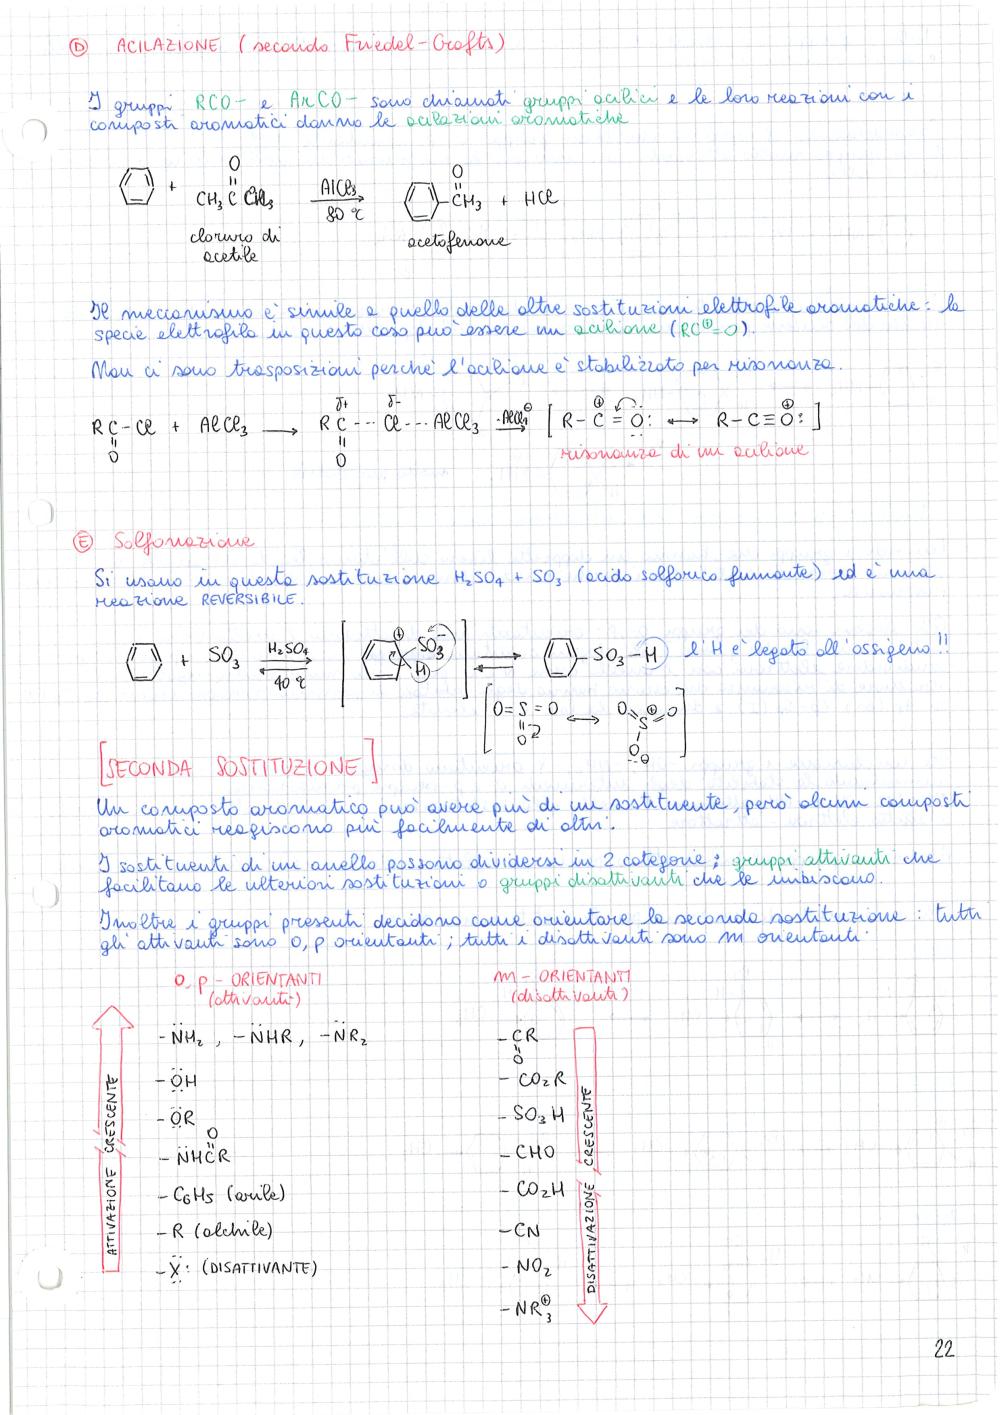 D ACILAZIONE (secondo Friedel-Crafts)
I gruppi RCO- e ArCO- sono chiamati gruppi acilici e le loro reazioni con i
composti aromatici danno le acilazioni aromatiche
+ CH3 C O AlCl3 80 °C C O CH3 + HCl
cloruro di
acetile
acetofenone
Il meccanismo è simile a quello delle altre sostituzioni elettrofile aromatiche: la
specie elettrofila in questo caso può essere un acilione (RC⊕=O).
Non ci sono trasposizioni perché l'acilione è stabilizzato per risonanza.
R C - Cl + AlCl3 → R C δ+ --- Cl δ- --- AlCl3 -AlCl4⊖ → [ R - C⊕ = O: ↔ R - C≡O⊕: ]
O O
risonanza di un acilione
E Solfonazione
Si usano in questa sostituzione H2SO4 + SO3 (acido solforico fumante) ed è una
reazione REVERSIBILE.
+ SO3 H2SO4 40 °C [ ⊕ SO3⁻ H ] ⇌ SO3-H l'H è legato all'ossigeno!!
[ O=S=O O ↔ O S⊕ O O⊖ ]
[SECONDA SOSTITUZIONE]
Un composto aromatico può avere più di un sostituente, però alcuni composti
aromatici reagiscono più facilmente di altri.
I sostituenti di un anello possono dividersi in 2 categorie; gruppi attivanti che
facilitano le ulteriori sostituzioni o gruppi disattivanti che le inibiscono.
Inoltre i gruppi presenti decidono come orientare la seconda sostituzione: tutti
gli attivanti sono o, p orientanti; tutti i disattivanti sono m orientanti.
o, p - ORIENTANTI
(attivanti)
ATTIVAZIONE CRESCENTE
-NH2, -NHR, -NR2
-OH
-OR
-NHCR
O
-C6H5 (arile)
-R (alchile)
-X: (DISATTIVANTE)
m - ORIENTANTI
(disattivanti)
-CR
O
-CO2R
-SO3H
-CHO
-CO2H
-CN
-NO2
-NR3⊕
DISATTIVAZIONE CRESCENTE
22